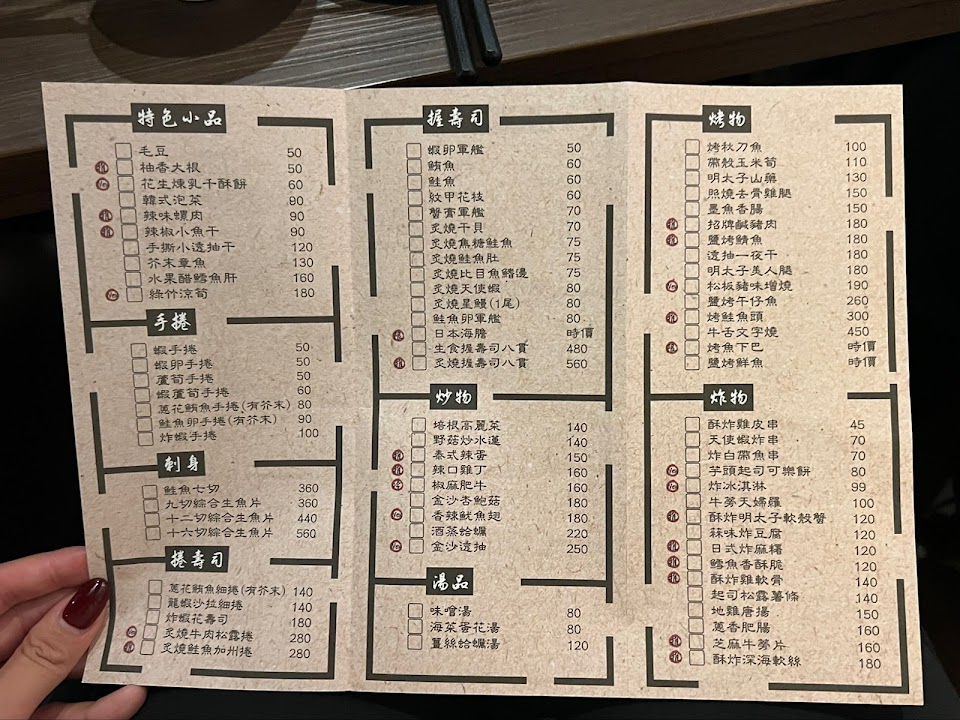 特色小品
毛豆 50
柚香大根 50
花生煉乳干酥餅 60
韓式泡菜 90
辣味螺肉 90
辣椒小魚干 90
手撕小透抽干 120
芥末章魚 130
水果醋鱈魚肝 160
綠竹涼筍 180
手捲
蝦手捲 50
蝦卵手捲 50
蘆筍手捲 50
蝦蘆筍手捲 60
蔥花鮪魚手捲(有芥末) 80
鮭魚卵手捲(有芥末) 90
炸蝦手捲 100
刺身
鮭魚七切 360
九切綜合生魚片 360
十二切綜合生魚片 440
十六切綜合生魚片 560
捲壽司
蔥花鮪魚細捲(有芥末) 140
龍蝦沙拉細捲 140
炸蝦花壽司 180
炙燒牛肉松露捲 280
炙燒鮭魚加州捲 280
握壽司
蝦卵軍艦 50
鮪魚 60
鮭魚 60
紋甲花枝 60
蟹膏軍艦 70
炙燒干貝 70
炙燒焦糖鮭魚 75
炙燒鮭魚肚 75
炙燒比目魚鰭邊 75
炙燒天使蝦 80
炙燒星鰻(1尾) 80
鮭魚卵軍艦 80
日本海膽 時價
生食握壽司八貫 480
炙燒握壽司八貫 560
炒物
培根高麗菜 140
野菇炒水蓮 140
泰式辣蛋 150
辣口雞丁 160
椒麻肥牛 160
金沙杏鮑菇 180
香辣魷魚翅 180
酒蒸蛤蠣 220
金沙透抽 250
湯品
味噌湯 80
海菜蛋花湯 80
薑絲蛤蠣湯 120
烤物
烤秋刀魚 100
帶殼玉米筍 110
明太子山藥 130
照燒去骨雞腿 150
墨魚香腸 150
招牌鹹豬肉 180
鹽烤鯖魚 180
透抽一夜干 180
明太子美人腿 180
松板豬味增燒 190
鹽烤午仔魚 260
烤鮭魚頭 300
牛舌文字燒 450
烤魚下巴 時價
鹽烤鮮魚 時價
炸物
酥炸雞皮串 45
天使蝦炸串 70
炸白帶魚串 70
芋頭起司可樂餅 80
炸冰淇淋 99
牛蒡天婦羅 100
酥炸明太子軟殼蟹 120
蒜味炸豆腐 120
日式炸麻糬 120
鱈魚香酥脆 120
酥炸雞軟骨 140
起司松露薯條 140
地雞唐揚 150
蔥香肥腸 160
芝麻牛蒡片 160
酥炸深海軟絲 180